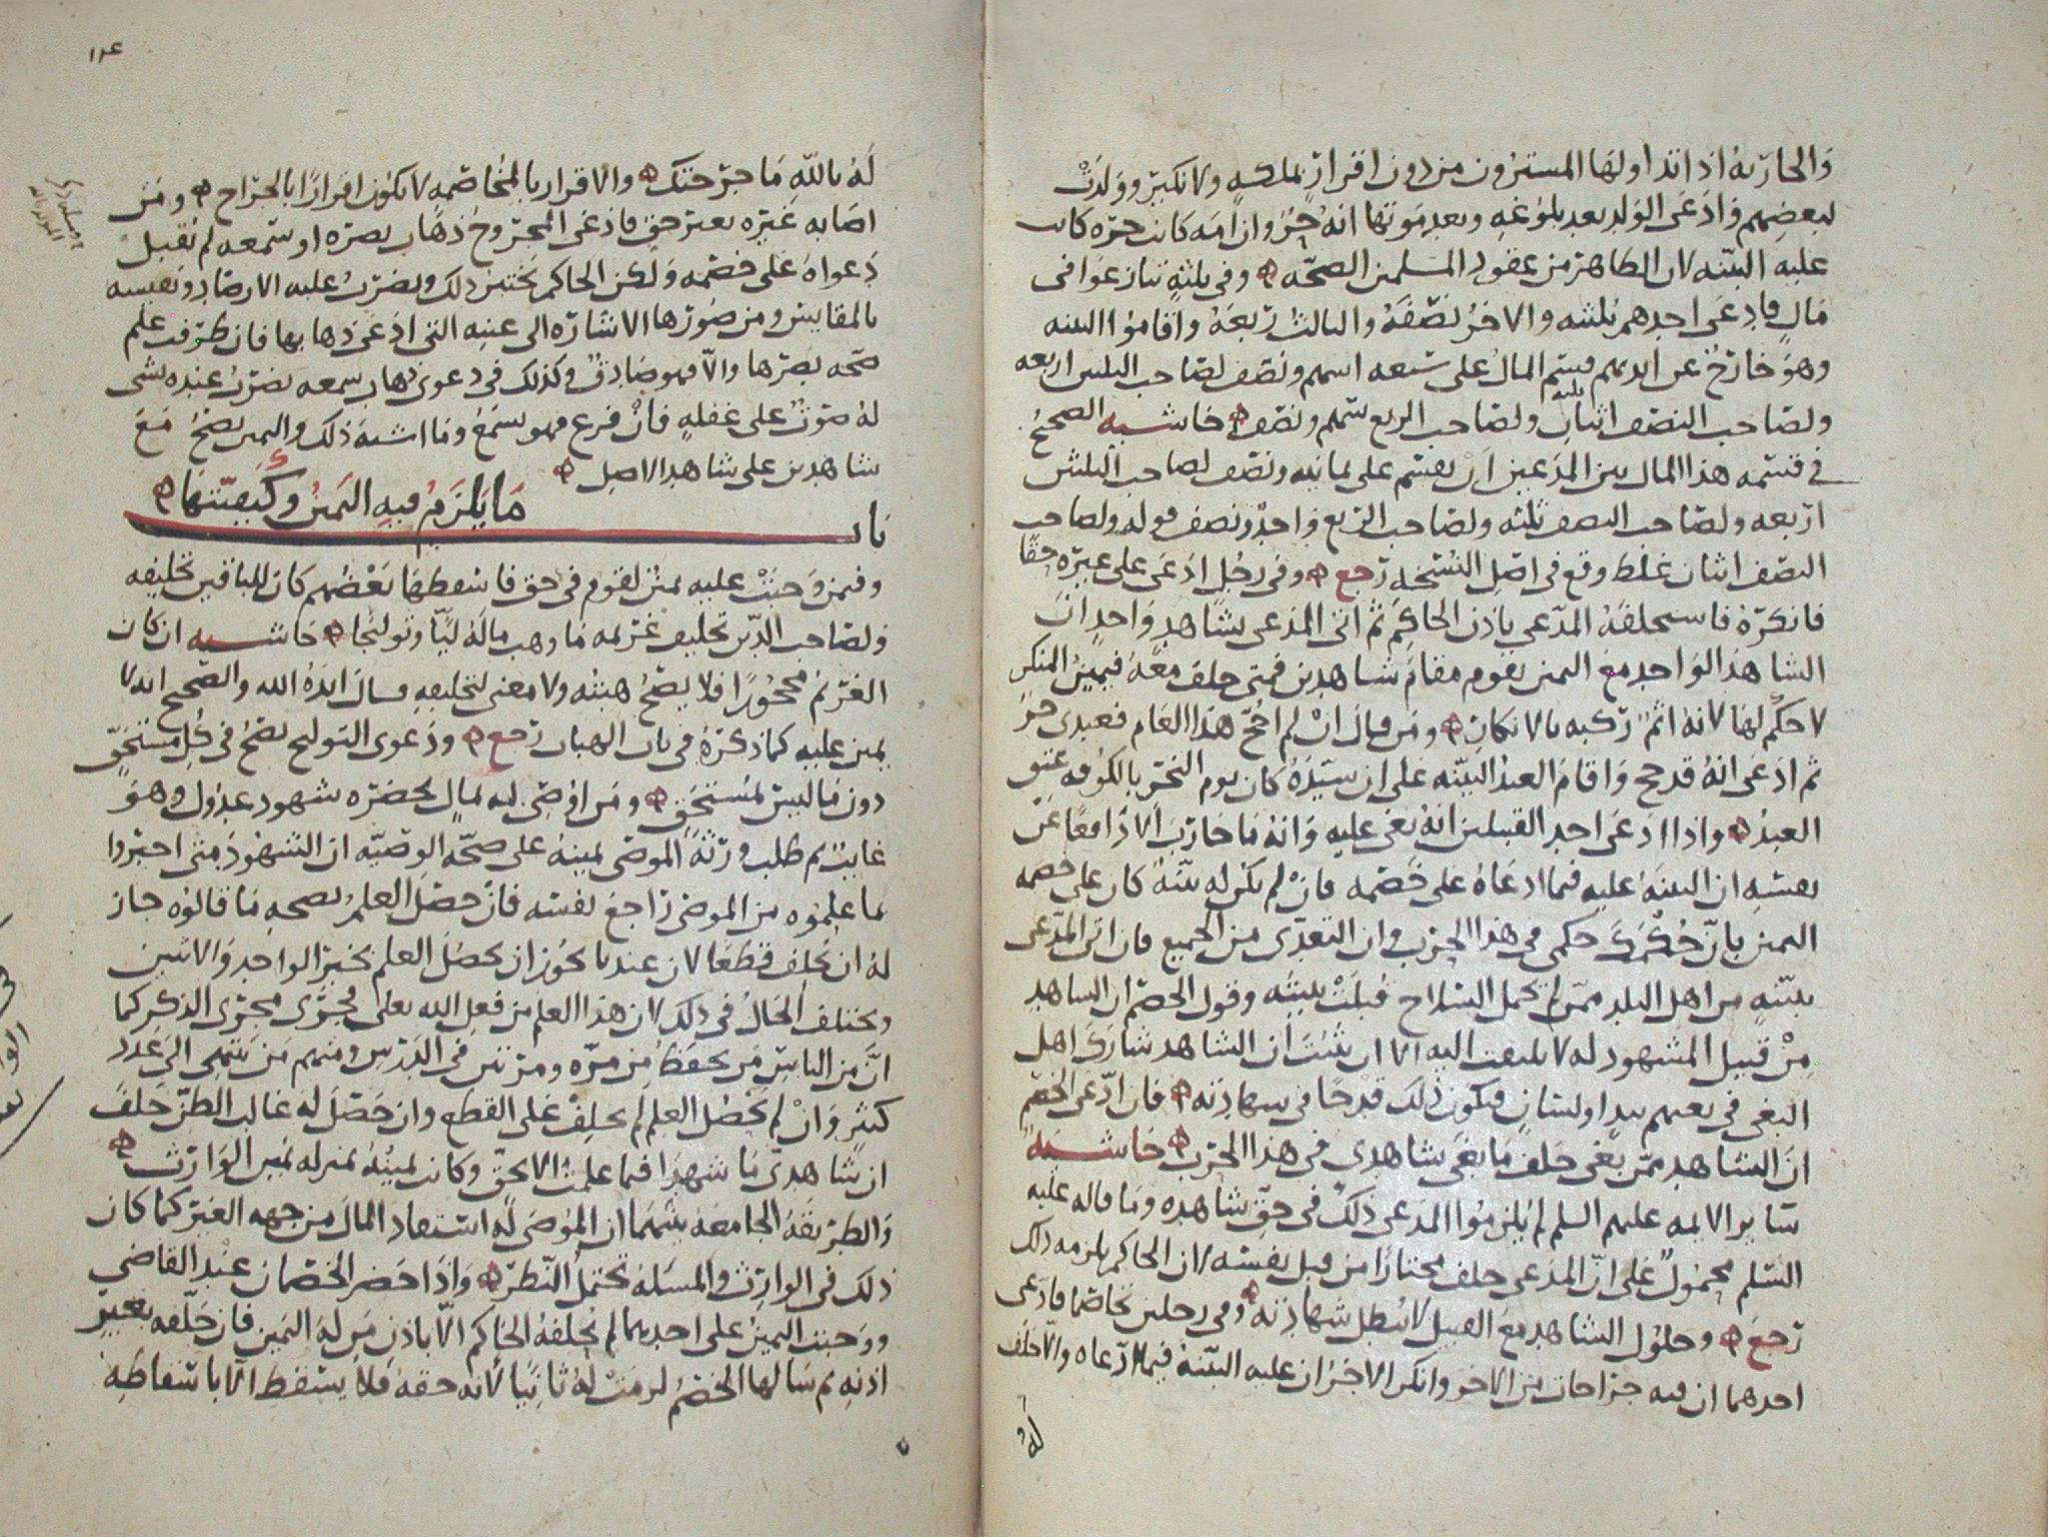 والجارية اذا تداولها المشترون من دون اقرار بملكه ولا نكير وولدت
لبعضهم وادعى الولد بعد بلوغه وبعد موتها انه حر وان امه كانت حرة كانت
عليه البينه لان الظاهر من عقود المسلمين الصحه وفي ثلثة تنازعوا في
مال فادعى احدهم ثلثيه والاخر نصفه والثالث ربعه واقاموا البينه
وهو خارج عن ايديهم قسم المال على سبعه اسهم ونصف لصاحب الثلثين اربعه
ولصاحب النصف اثنان ولصاحب الربع سهم ونصف حاشيه الصحيح
في قسمه هذا المال بين المدعيين ان يقسم على ثمانيه ونصف لصاحب الثلثين
اربعه ولصاحب النصف ثلثه ولصاحب الربع واحد ونصف قوله ولصاحب
النصف اثنان غلط وقع في اصل النسخه رجع وفي رجل ادعى على غيره حقا
فانكره فاستحلفه المدعي باذن الحاكم ثم اتى المدعي بشاهد واحد ان
الشاهد الواحد مع اليمين يقوم مقام شاهدين فمتى حلف معه فيمين المنكر
لا حكم لها لانه اثم ركبه بالانكار ومن قال ان لم احج هذا العام فعبدي حر
ثم ادعى انه قد حج واقام العبد البينه على ان سيده كان يوم النحر بالكوفه عتق
العبد واذا ادعى احد القبيلين انه بغي عليه وانه ما حارب الا دافعا عن
نفسه ان البينه عليه فيما ادعاه على خصمه فان لم يكن له بينة كان على خصمه
اليمين بان حكمك حكمي في هذا الحرب وان التعدي من الجميع فان اتى المدعي
ببينه من اهل البلد ممن لم يحمل السلاح قبلت بينته وقول الخصم ان الشاهد
من قبيل المشهود له لا يلتفت اليه الا ان يثبت ان الشاهد شارك اهل
البغي في بغيهم بيد او لسان فيكون ذلك قدحا في شهادته فان ادعى الخصم
ان الشاهد ممن بغى حلف ما بغى شاهدي في هذا الحرب حاشيه
سائر الايمه عليهم السلم لم يلزموا المدعي ذلك في حق شاهده وما قاله عليه
السلم محمول على ان المدعي حلف مختارا من قبل نفسه لا ان الحاكم يلزمه ذلك
رجع وحلول الشاهد مع القبيل لا يبطل شهادته وفي رجلين تخاصما فادعى
احدهما ان فيه جراحات من الاخر وانكر الاخر ان عليه البينة فيما ادعاه والا حلف
له
١٢٤
له بالله ما جرحتك والاقرار بالمخاصمه لا يكون اقرارا بالجراح ومن
اصابه غيره بغير حق فادعى المجروح ذهاب بصره او سمعه لم تقبل
دعواه على خصمه ولكن الحاكم يختبر ذلك ويضرب عليه الارصاد ونفسه
بالمقاييس ومن صورها الاشارة الى عينه التي ادعى ذهابها فان طرفت علم
صحه بصرها والا فهو صادق وكذلك في دعوى ذهاب سمعه يضرب عنده بشي
له صوت على غفله فان فزع فهو يسمع وما اشبه ذلك واليمين يصح مع
شاهدين على شاهد الاصل
باب ما يلزم فيه اليمين وكيفيتها
وفيمن وجبت عليه يمين لقوم في حق فاسقطها بعضهم كان للباقين تحليفه
ولصاحب الدين تحليف غريمه ما وهب ماله ليا وتولجا حاشيه ان كان
الغريم محجورا فلا يصح هبته ولا معنى لتحليفه قال ايده الله والصحيح انه لا
يمين عليه كما ذكره في باب الهبات رجع ودعوى التوليج تصح في كل مستحق
دون ما ليس بمستحق ومن اوصي له بمال بحضره شهود عدول وهو
غايب ثم طلب ورثة الموصي يمينه على صحه الوصيه ان الشهود متى اخبروا
بما علموه من الموصي راجع نفسه فان حصل العلم بصحه ما قالوه جاز
له ان يحلف قطعا لان عندنا يجوز ان يحصل العلم بخبر الواحد والاثنين
ويختلف الحال في ذلك لان هذا العلم من فعل الله تعالى مجرى مجرى الذكر كما
ان من الناس من يحفظ من مره ومرتين في الدرس ومنهم من ينتهي الى عدد
كثير وان لم يحصل العلم لم يحلف على القطع وان حصل له غالب الظن حلف
ان شاهدي ما شهدا فيما علمت الا بحق وكانت يمينه بمنزله يمين الوارث
والطريقة الجامعة بينهما ان الموصى له استفاد المال من جهه الغير كما كان
ذلك في الوارث والمسله تحتمل النظر واذا حضر الخصمان عند القاضي
ووجبت اليمين على احدهما لم يحلفه الحاكم الا باذن من له اليمين فان حلفه بغير
اذنه ثم سالها الخصم لزمت له ثانيا لانه حقه فلا يسقط الا باسقاطه